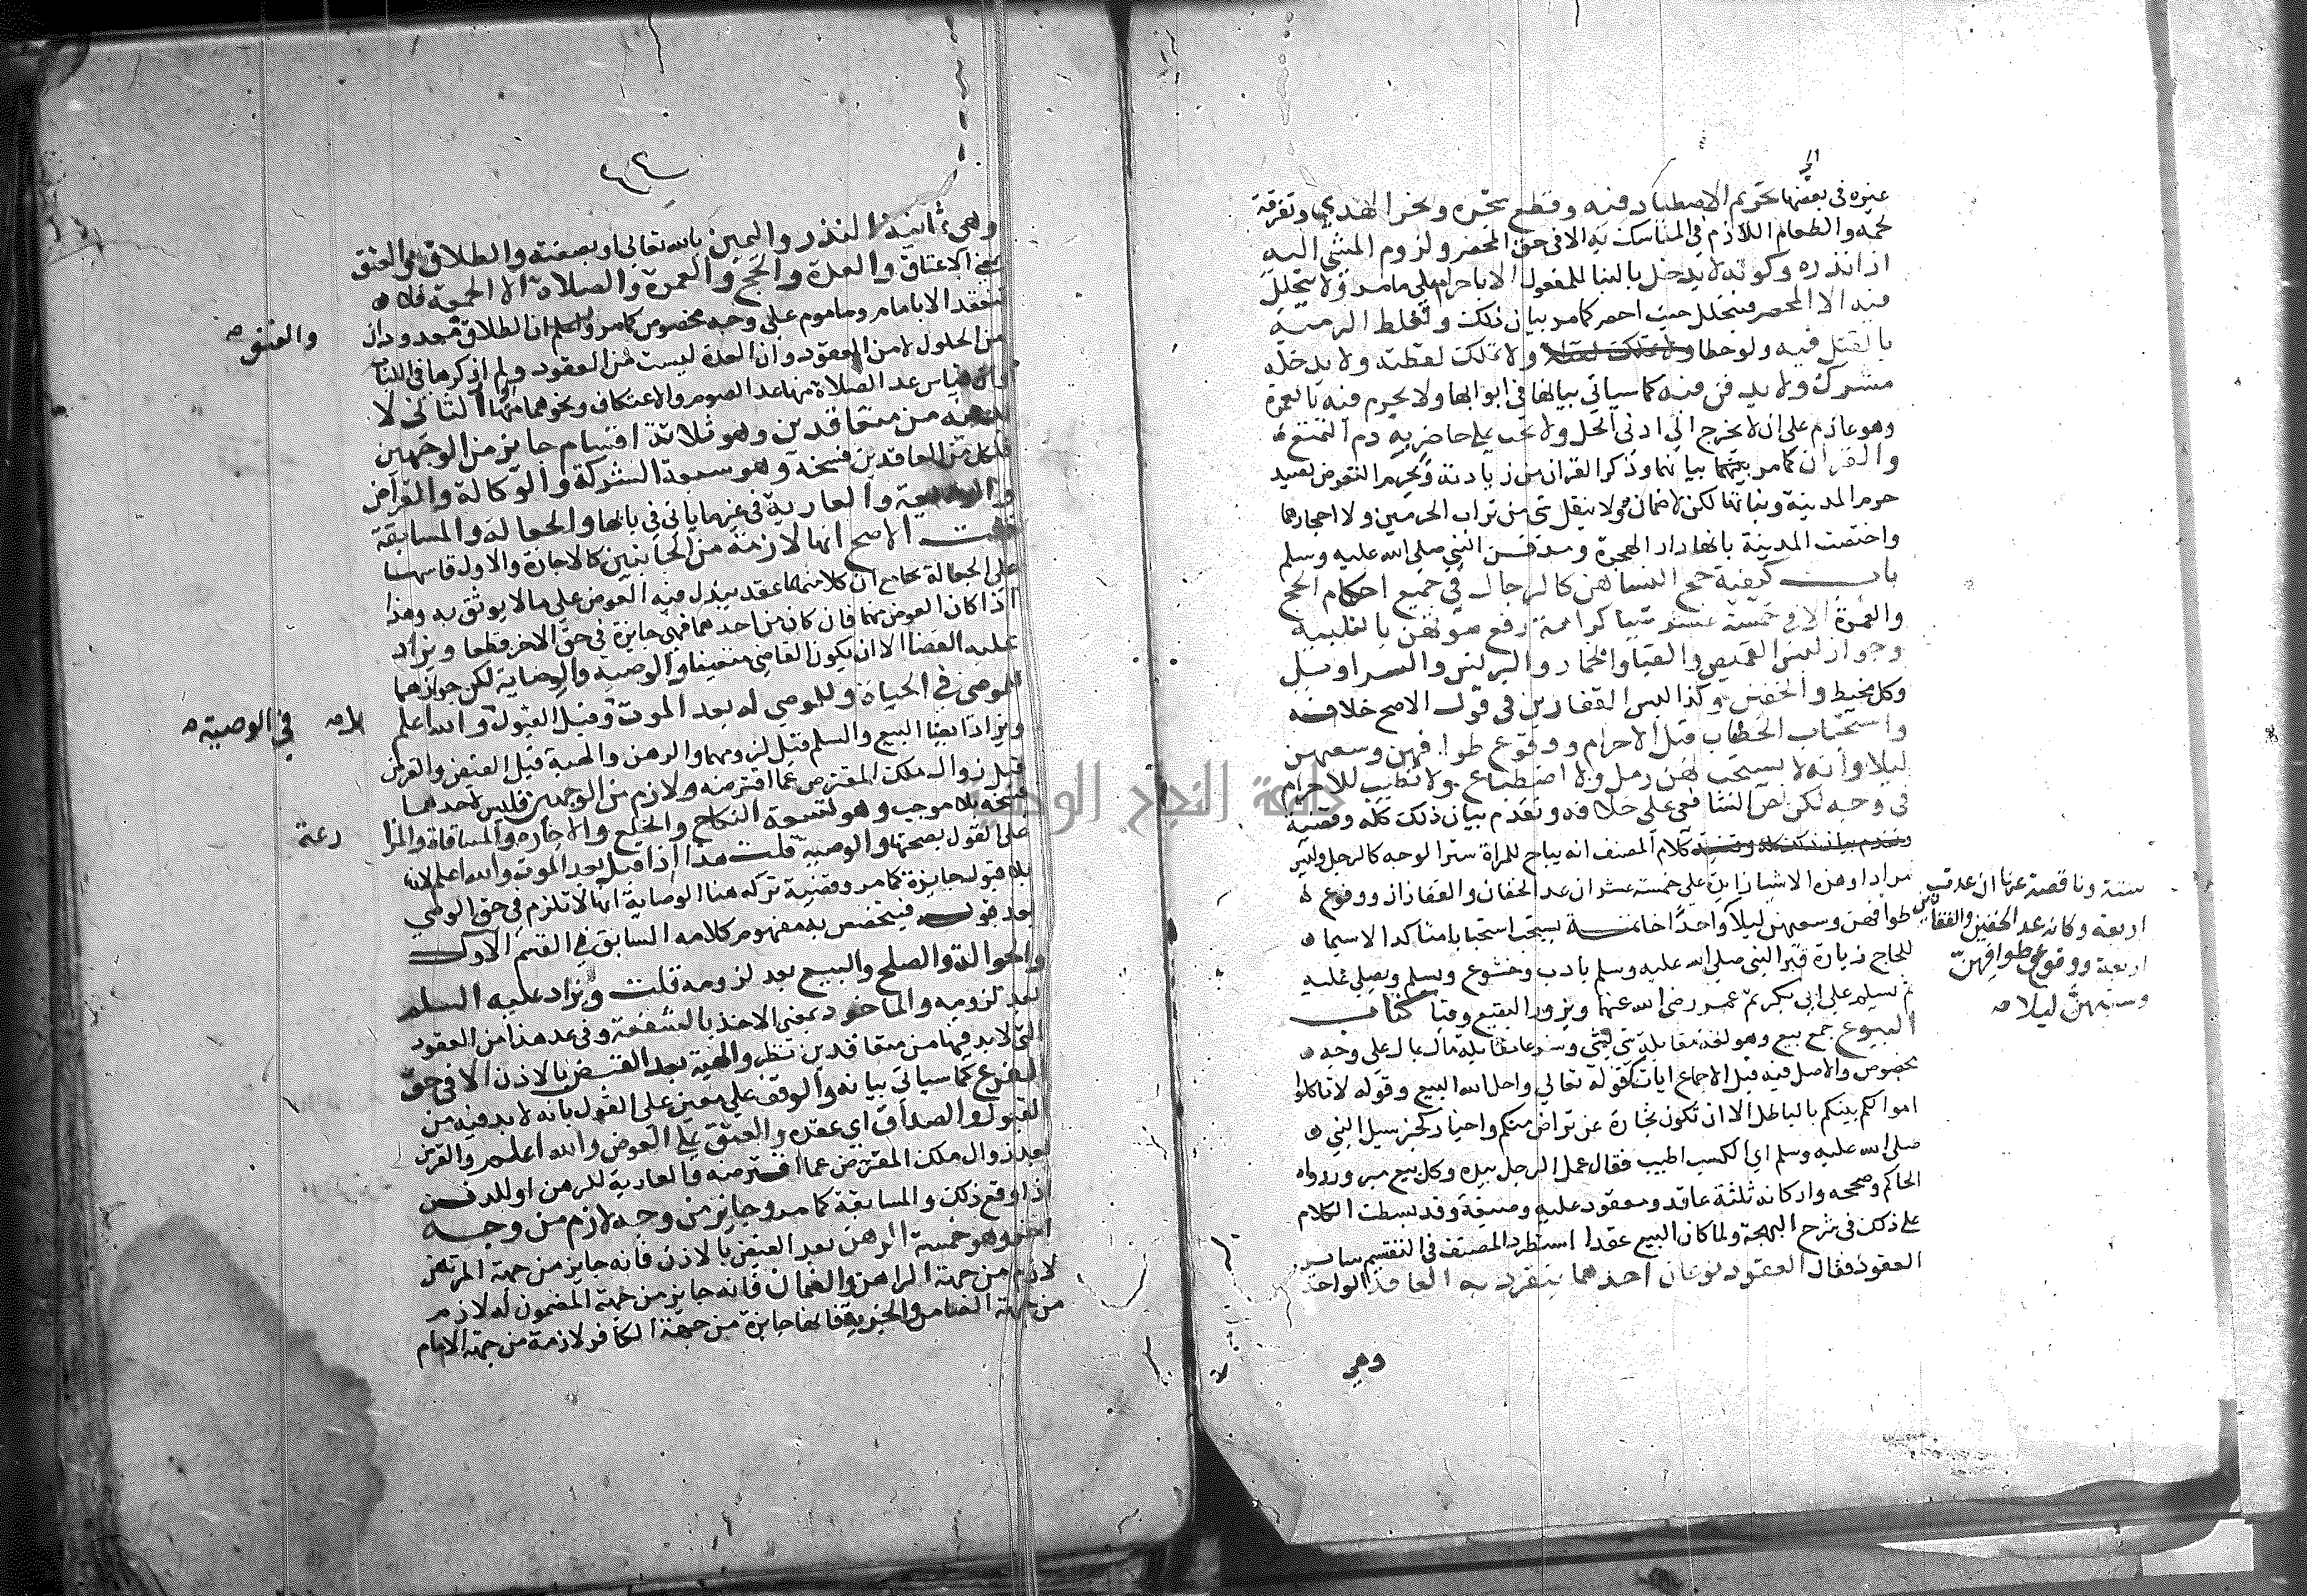 غيره في بعضها تحريم الاصطياد فيه وقطع شجره ونحر الهدي وتفرقة
لحمه والطعام اللازم في المناسك به الا في حق المحصر ولزوم المشي اليه
اذا نذره وكونه لا يدخل بالبنا للمفعول الا باحرام على ما مر ولا يتحلل
منه الا المحصر فيتحلل حيث احصر كما مر بيان ذلك وتغلظ الدية
بالقتل فيه ولو خطا ولا تملك لقطته ولا يدخله
مشرك ولا يدفن فيه كما سياتي بيانها في ابوابها ولا يحرم فيه بالعمرة
وهو عازم على ان لا يخرج الى ادنى الحل ولا يجب على حاضريه دم التمتع
والقران كما مر بيانهما وذكر القران من زيادته ويحرم التعرض لصيد
حرم المدينة ونباتها لكن لا ضمان ولا ينقل شي من تراب الحرمين ولا احجارهما
واختصت المدينة بانها دار الهجرة ومدفن النبي صلى الله عليه وسلم
باب كيفية حج النسا هن كالرجال في جميع احكام الحج
والعمرة الا في خمسة عشر شيا كراهة رفع صوتهن بالتلبية
وجواز لبس القميص والقبا والخمار والبرنس والسراويل
وكل مخيط والخفين وكذا لبس القفازين في قول الاصح خلافه
واستحباب الخضاب قبل الاحرام ووقوع طوافهن وسعيهن
ليلا وانه لا يستحب لهن رمل ولا اضطباع ولا تطيب للاحرام
في وجه لكن نص الشافعي على خلافه وتقدم بيان ذلك كله وقضية
كلام المصنف انه يباح للمراة ستر الوجه كالرجل وليس
مرادا وهذه الاشيا زايدة على خمسة عشر ان عد الخفان والقفازان ووقوع
طوافهن وسعيهن ليلا واحدا خاتمة يستحب استحبابا متاكدا لا سيما
للحاج زيارة قبر النبي صلى الله عليه وسلم بادب وخشوع ويسلم ويصلي عليه
ثم يسلم على ابي بكر ثم عمر رضي الله عنهما ويزور البقيع وقبا كتاب
البيوع جمع بيع وهو لغة مقابلة شي بشي وشرعا مقابلة مال بمال على وجه
مخصوص والاصل فيه قبل الاجماع ايات كقوله تعالى واحل الله البيع وقوله لا تاكلوا
اموالكم بينكم بالباطل الا ان تكون تجارة عن تراض منكم واخبار كخبر سيل النبي
صلى الله عليه وسلم اي الكسب اطيب فقال عمل الرجل بيده وكل بيع مبرور رواه
الحاكم وصححه واركانه ثلثة عاقد ومعقود عليه وصيغة وقد بسطت الكلام
على ذلك في شرح البهجة ولما كان البيع عقدا استطرد المصنف في التقسيم ساير
العقود فقال العقود نوعان احدهما ينفرد به العاقد الواحد
وهي
ستة وناقصة عنها ان عدت
اربعة وكانه عد الخفين والقفازين
اربعة ووقوع طوافهن
وسعيهن ليلا
وهي ثمانية النذر واليمين بالله تعالى او بصفته والطلاق والعتق
يعني الاعتاق والعدة والحج والعمرة والصلاة الا الجمعة فلا
تنعقد الا بامام وماموم على وجه مخصوص كما مر واعلم ان الطلاق معدودان
والعتق
من الحلول لا من العقود وان العدة ليست من العقود ولم اذكرها في اللباب
وان قياس عد الصلاة منها عد الصوم والاعتكاف ونحوهما منها الثاني لا
بد فيه من متعاقدين وهو ثلاثة اقسام جايز من الوجهين
فلكل من العاقدين فسخه وهو سبعة الشركة والوكالة والقراض
والوديعة والعارية في غير ما ياتي في بابها والجعالة والمسابقة
قلت الاصح انها لازمة من الجانبين كالاجازة والاول قاسها
على الجعالة بجامع ان كلا منهما عقد يبذل فيه العوض على ما لا يوثق به وهذا
اذا كان العوض منهما فان كان من احدهما فهي جايزة في حق الاخر قطعا ويزاد
عليه القضا الا ان يكون القاضي متعينا والوصية والوصاية لكن جوازهما
للموصي في الحياة وللموصى له بعد الموت وقبل القبول والله اعلم
في الوصية
ويزاد ايضا البيع والسلم قبل لزومهما والرهن والهبة قبل القبض والقرض
قبل زوال ملك المقترض عما اقترضه ولازم من الوجهين فليس لاحدهما
فسخه بلا موجب وهو تسعة النكاح والخلع والاجاره والمساقاة والمزا
رعة
على القول بصحتها والوصية قلت هذا اذا قبل بعد الموت والله اعلم لانه
بلا قبول جايزة كما مر وقضية تركه هنا الوصاية انها لا تلزم في حق الوصي
بعد قبوله فيتخصص به مفهوم كلامه السابق في القسم الاول
والحوالة والصلح والبيع بعد لزومه قلت ويزاد عليه السلم
بعد لزومه والماخوذ بمعنى الاخذ بالشفعة وفي عد هذا من العقود
التي لا بد فيها من متعاقدين نظر والهبة بعد القبض بالاذن الا في حق
الفرع كما سياتي بيانه والوقف على معين على القول بانه لا بد فيه من
القبول والصداق اي عقده والعتق على العوض والله اعلم والقرض
بعد زوال ملك المقترض عما اقترضه والعارية للرهن او للدفن
اذا وقع ذلك والمسابقة كما مر وجايز من وجه لازم من وجه
اخر وهو خمسة الرهن بعد القبض بالاذن فانه جايز من جهة المرتهن
لازم من جهة الراهن والضمان فانه جايز من جهة المضمون له لازم
من جهة الضامن والجزية فانها جايزة من جهة الكافر لازمة من جهة الامام